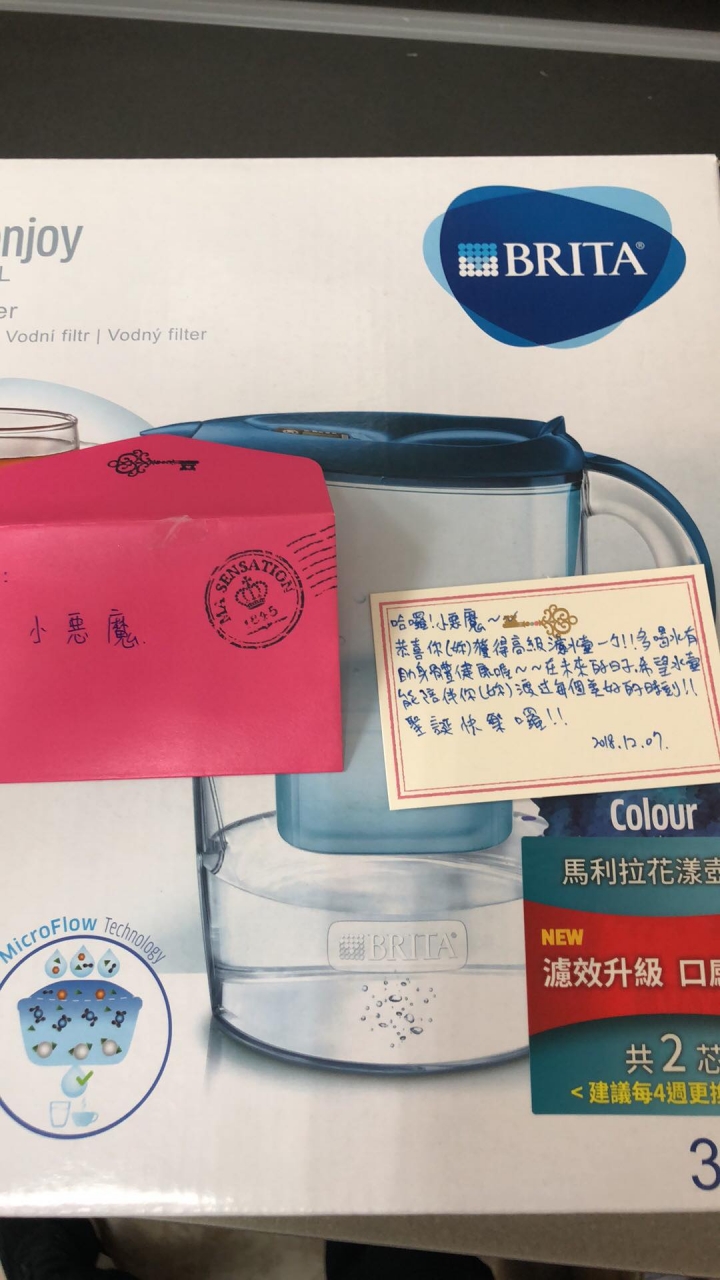 njoy
L
er
Vodní filtr | Vodný filter
BRITA®
MA SENSATION
1845
:
小惡魔
哈囉!小惡魔~
恭喜你(妳)獲得高級濾水壺一個!!多喝水有
助身體健康喔~~在未來的日子,希望水壺
能陪伴你(妳)渡過每個美好的時刻!!
聖誕快樂囉!!
2018.12.07.
Colour
馬利拉花漾壺
NEW
濾效升級 口感
共2芯
<建議每4週更換
3
BRITA
MicroFlow Technology